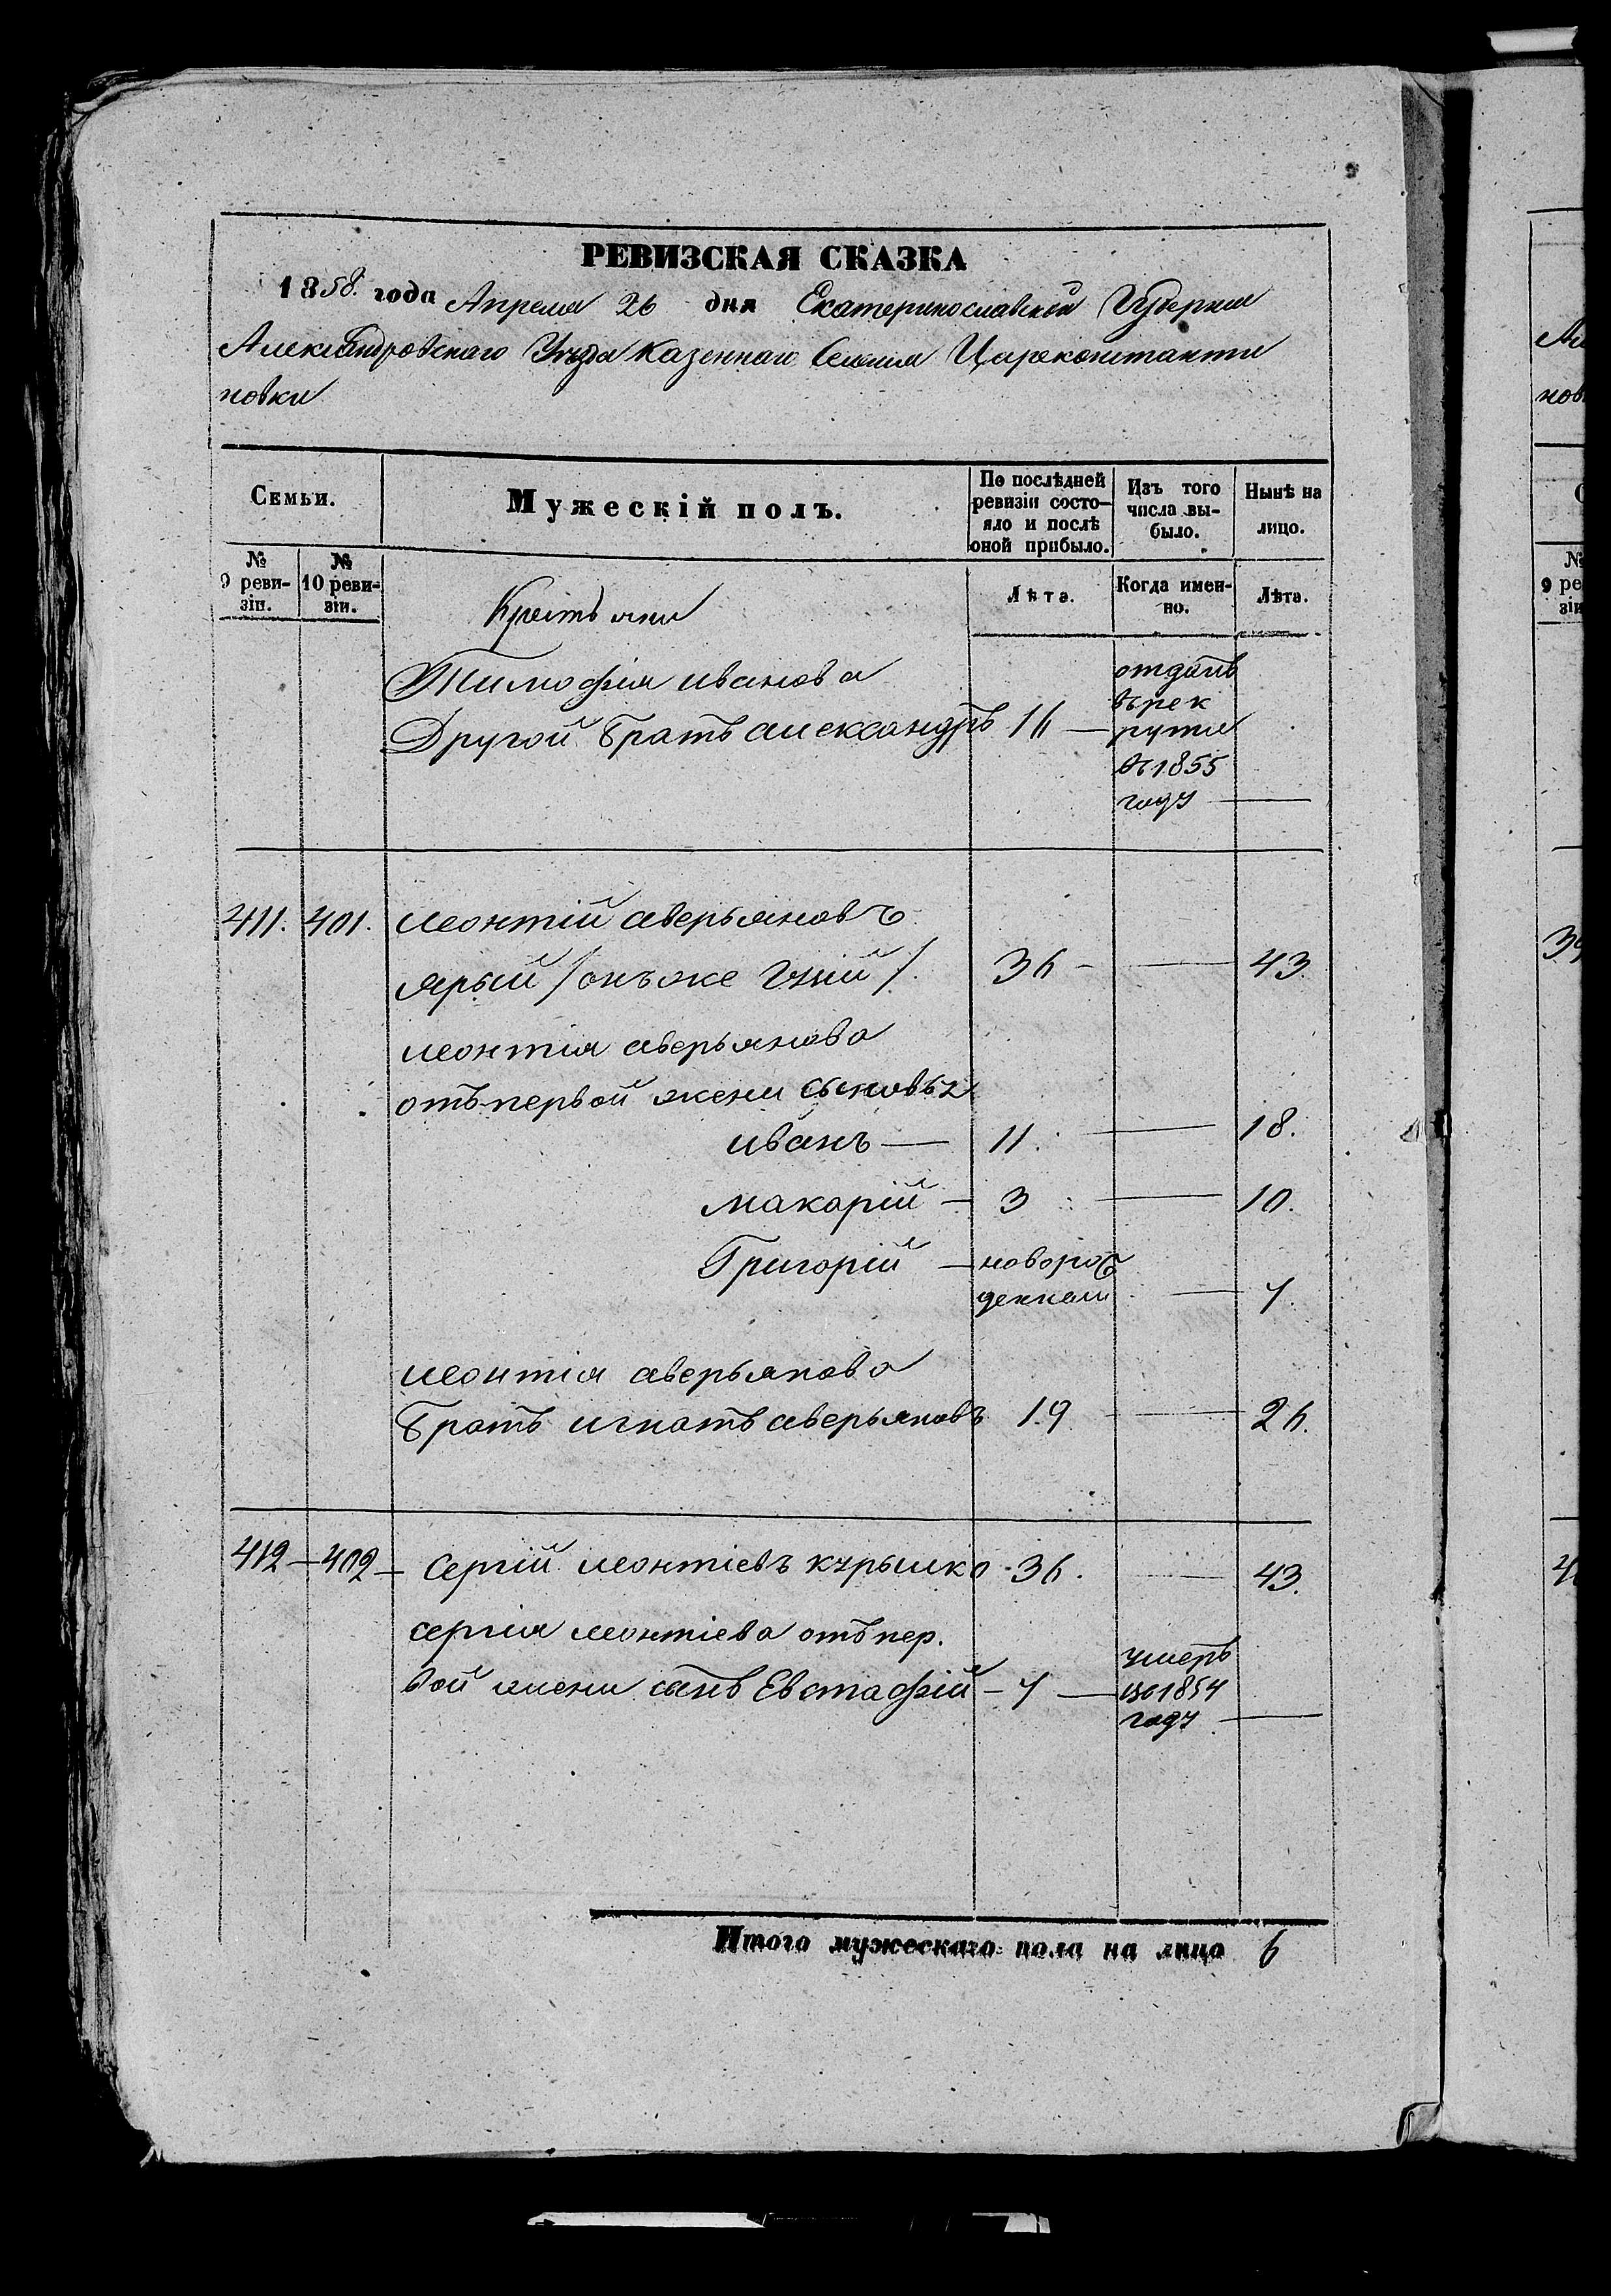 РЕВИЗСКАЯ СКАЗКА
1858. года Апреля 26 дня Екатеринославской Губернии
Александровскаго Уезда Казеннаго Селения Цареконстанти
новки
Семьи.
Мужескій полъ.
По послѣдней ревизіи состо-яло и послѣ оной прибыло.
Изъ того числа вы-было.
Нынѣ на лицо.
№ 9 реви-зіи.
№ 10 реви-зіи.
Лѣта.
Когда имен-но.
Лѣта.
Крестьяни
Тимофія иванова
Другой Братъ александръ 16 — отданъ въ рек руты въ 1855 году —
411. 401. леонтій аверьяновъ
ярый / онъ же гукій /. 36 — — 43.
леонтія аверьянова
отъ первой жени сыновья
иванъ — 11. — 18.
макарій — 3 — 10.
Григорій — новорож денный — 7.
леонтія аверьянова
Братъ игнатъ аверьяновъ 19 — 26.
412 — 402 — Сергій леонтіевъ курышко 36. — 43.
сергія леонтіева отъ пер.
вой жени сынъ Евстафій — 7 — умеръ во 1854 году —
Итого мужескаго пола на лицо 6